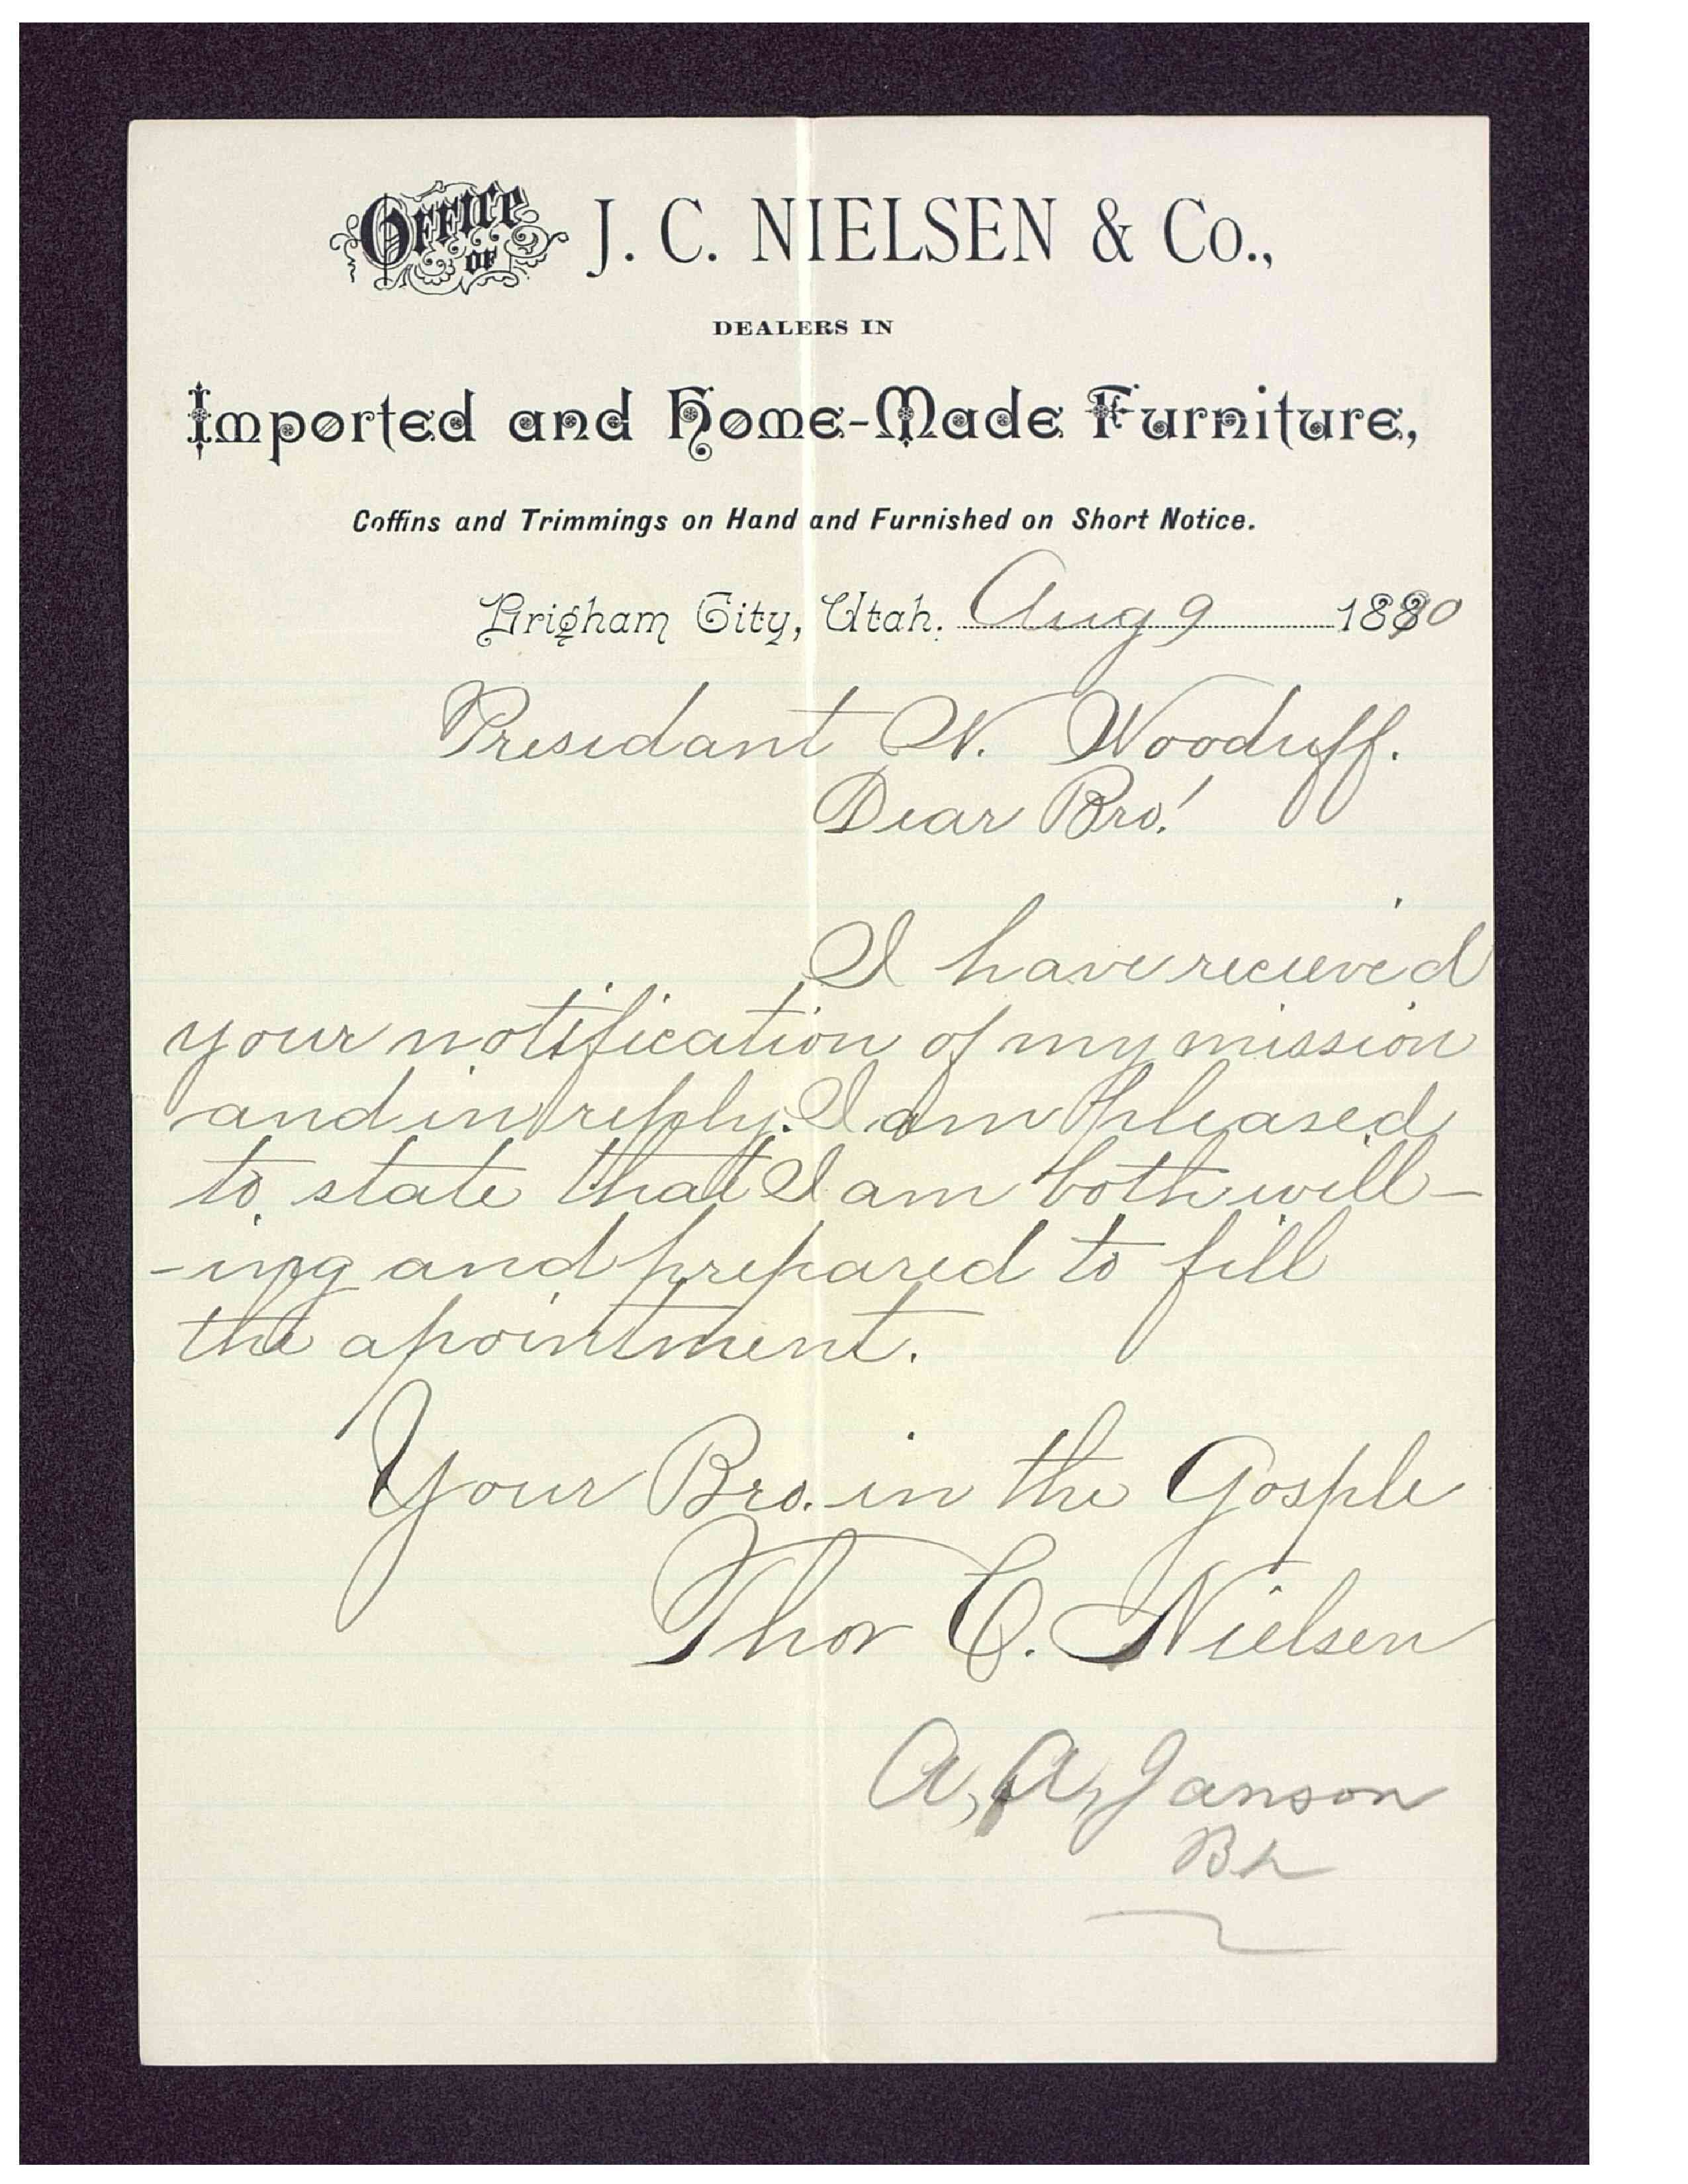 OFFICE OF J. C. NIELSEN & Co.,
DEALERS IN
Imported and Home-Made Furniture,
Coffins and Trimmings on Hand and Furnished on Short Notice.
Brigham City, Utah. Aug 9 1890
Presidant W. Woodruff.
Dear Bro!
I have recieved
your notification of my mission
and in reply. I am pleased
to state that I am both will-
-ing and prepared to fill
the apointment.
Your Bro. in the Gosple
Thor C. Nielsen
A, A, Janson
Bp